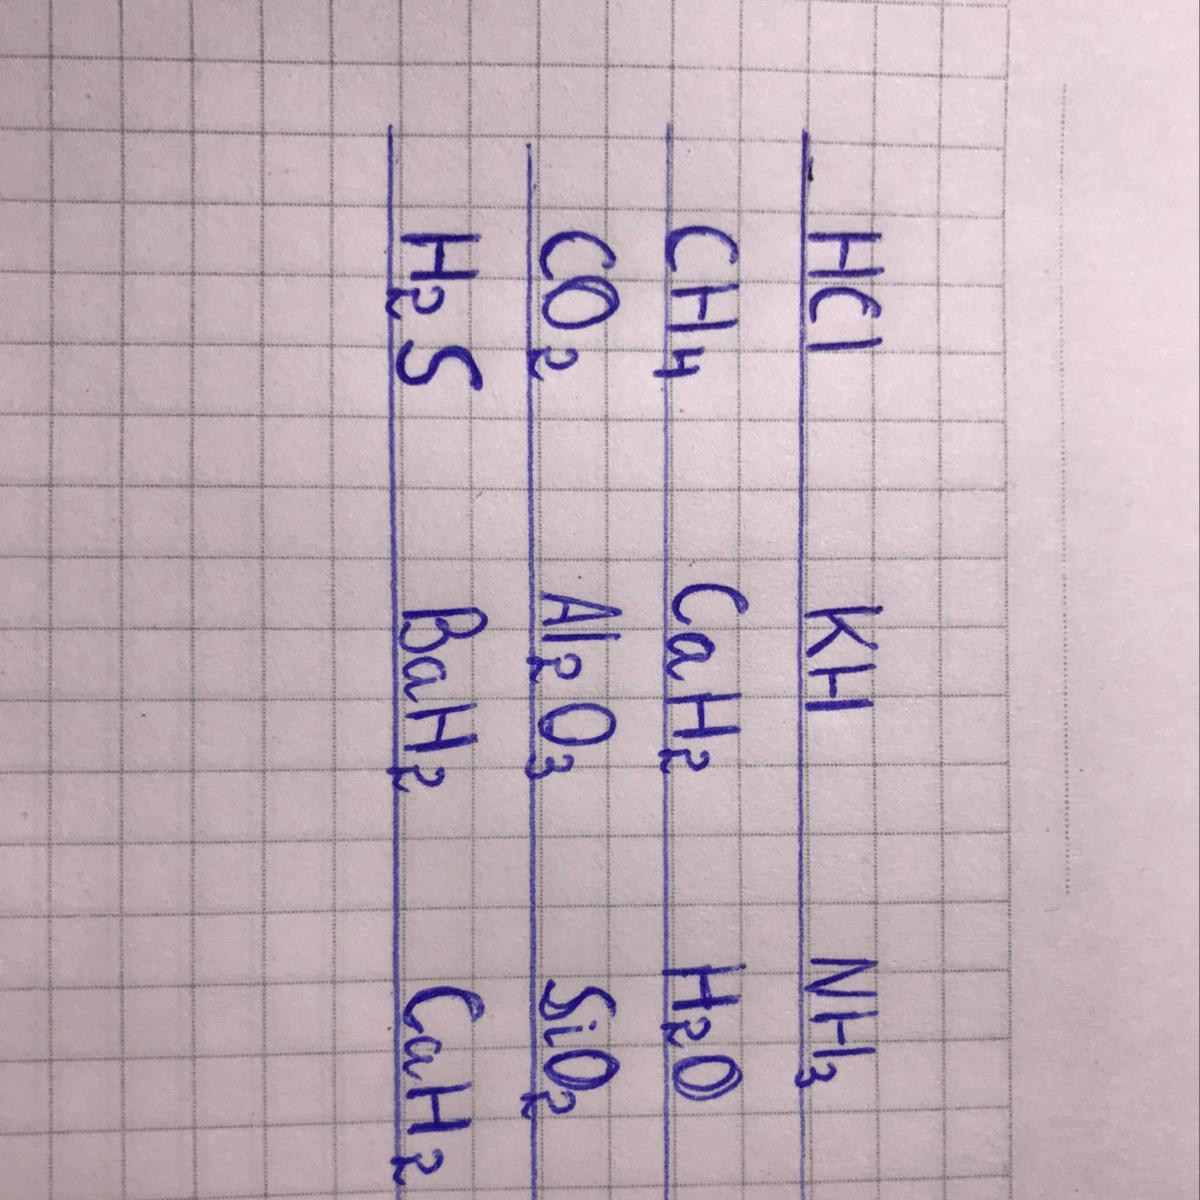 HCl KH NH₃
CH₄ CaH₂ H₂O
CO₂ Al₂O₃ SiO₂
H₂S BaH₂ CaH₂